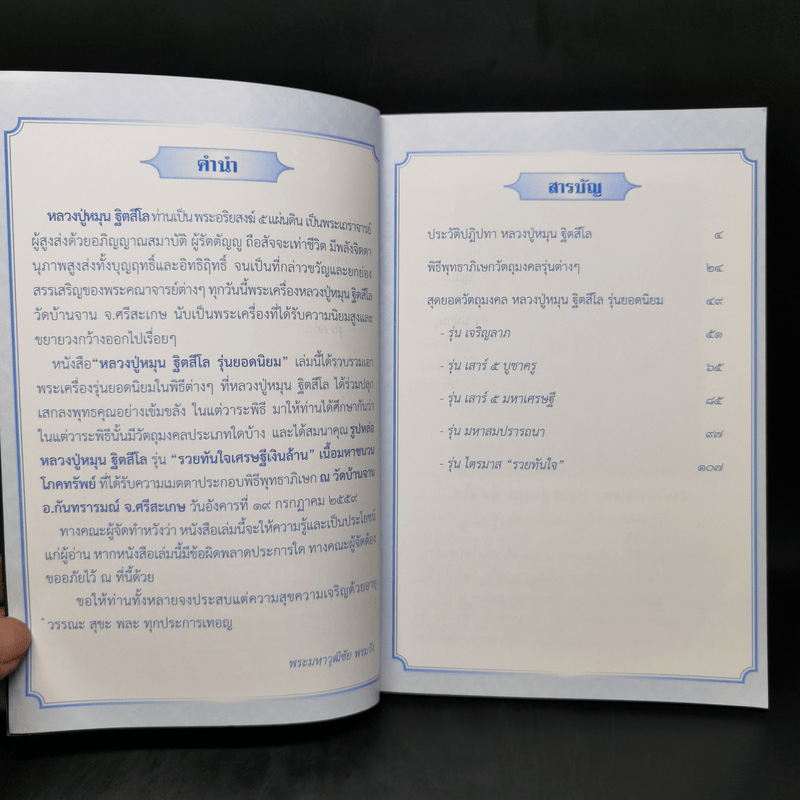 คำนำ
หลวงปู่หมุน ฐิตสีโล ท่านเป็น พระอริยสงฆ์ ๕ แผ่นดิน เป็นพระเถราจารย์
ผู้สูงส่งด้วยอภิญญาณสมาบัติ ผู้รัตตัญญู ถือสัจจะเท่าชีวิต มีพลังจิตตา
นุภาพสูงส่งทั้งบุญฤทธิ์และอิทธิฤทธิ์ จนเป็นที่กล่าวขวัญและยกย่อง
สรรเสริญของพระคณาจารย์ต่างๆ ทุกวันนี้พระเครื่องหลวงปู่หมุน ฐิตสีโล
วัดบ้านจาน จ.ศรีสะเกษ นับเป็นพระเครื่องที่ได้รับความนิยมสูงและ
ขยายวงกว้างออกไปเรื่อยๆ
หนังสือ“หลวงปู่หมุน ฐิตสีโล รุ่นยอดนิยม” เล่มนี้ได้รวบรวมเอา
พระเครื่องรุ่นยอดนิยมในพิธีต่างๆ ที่หลวงปู่หมุน ฐิตสีโล ได้ร่วมปลุก
เสกลงพุทธคุณอย่างเข้มขลัง ในแต่วาระพิธี มาให้ท่านได้ศึกษากันว่า
ในแต่วาระพิธีนั้นมีวัตถุมงคลประเภทใดบ้าง และได้สมนาคุณ รูปหล่อ
หลวงปู่หมุน ฐิตสีโล รุ่น “รวยทันใจเศรษฐีเงินล้าน” เนื้อมหาชนวน
โภคทรัพย์ ที่ได้รับความเมตตาประกอบพิธีพุทธาภิเษก ณ วัดบ้านจาน
อ.กันทรารมณ์ จ.ศรีสะเกษ วันอังคารที่ ๑๙ กรกฎาคม ๒๕๕๙
ทางคณะผู้จัดทำหวังว่า หนังสือเล่มนี้จะให้ความรู้และเป็นประโยชน์
แก่ผู้อ่าน หากหนังสือเล่มนี้มีข้อผิดพลาดประการใด ทางคณะผู้จัดต้อง
ขออภัยไว้ ณ ที่นี้ด้วย
ขอให้ท่านทั้งหลายจงประสบแต่ความสุขความเจริญด้วยอายุ
วรรณะ สุขะ พละ ทุกประการเทอญ
พระมหาวุฒิชัย
สารบัญ
ประวัติปฏิปทา หลวงปู่หมุน ฐิตสีโล ๔
พิธีพุทธาภิเษกวัตถุมงคลรุ่นต่างๆ ๒๔
สุดยอดวัตถุมงคล หลวงปู่หมุน ฐิตสีโล รุ่นยอดนิยม ๔๙
- รุ่น เจริญลาภ ๕๑
- รุ่น เสาร์ ๕ บูชาครู ๖๕
- รุ่น เสาร์ ๕ มหาเศรษฐี ๘๕
- รุ่น มหาสมปรารถนา ๙๗
- รุ่น ไตรมาส “รวยทันใจ” ๑๐๗